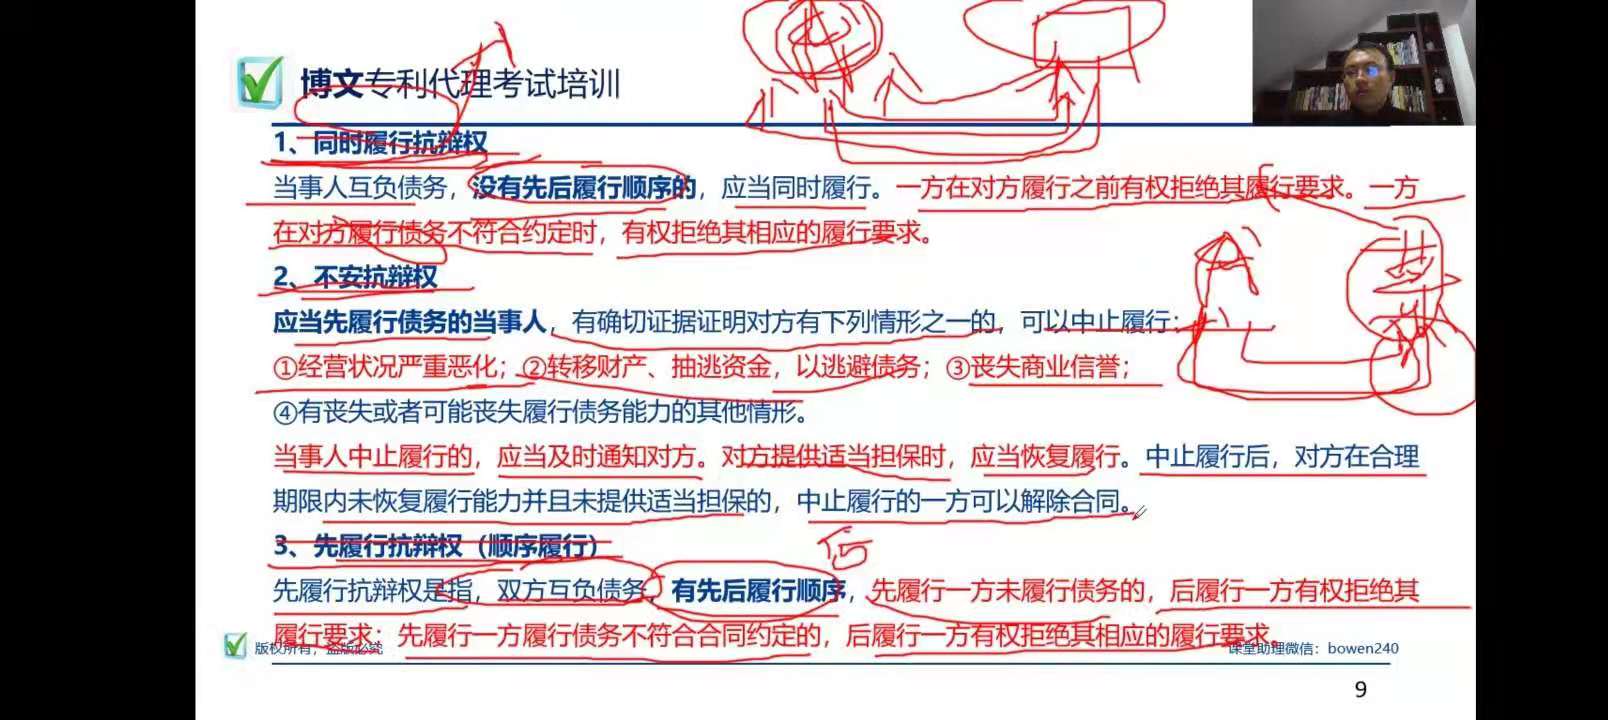 博文专利代理考试培训
1、同时履行抗辩权
当事人互负债务，没有先后履行顺序的，应当同时履行。一方在对方履行之前有权拒绝其履行要求。一方
在对方履行债务不符合约定时，有权拒绝其相应的履行要求。
2、不安抗辩权
应当先履行债务的当事人，有确切证据证明对方有下列情形之一的，可以中止履行；
①经营状况严重恶化；②转移财产、抽逃资金，以逃避债务；③丧失商业信誉；
④有丧失或者可能丧失履行债务能力的其他情形。
当事人中止履行的，应当及时通知对方。对方提供适当担保时，应当恢复履行。中止履行后，对方在合理
期限内未恢复履行能力并且未提供适当担保的，中止履行的一方可以解除合同。
3、先履行抗辩权（顺序履行）
后
先履行抗辩权是指，双方互负债务，有先后履行顺序，先履行一方未履行债务的，后履行一方有权拒绝其
履行要求；先履行一方履行债务不符合合同约定的，后履行一方有权拒绝其相应的履行要求。
版权所有，盗版必究
课堂助理微信：bowen240
9